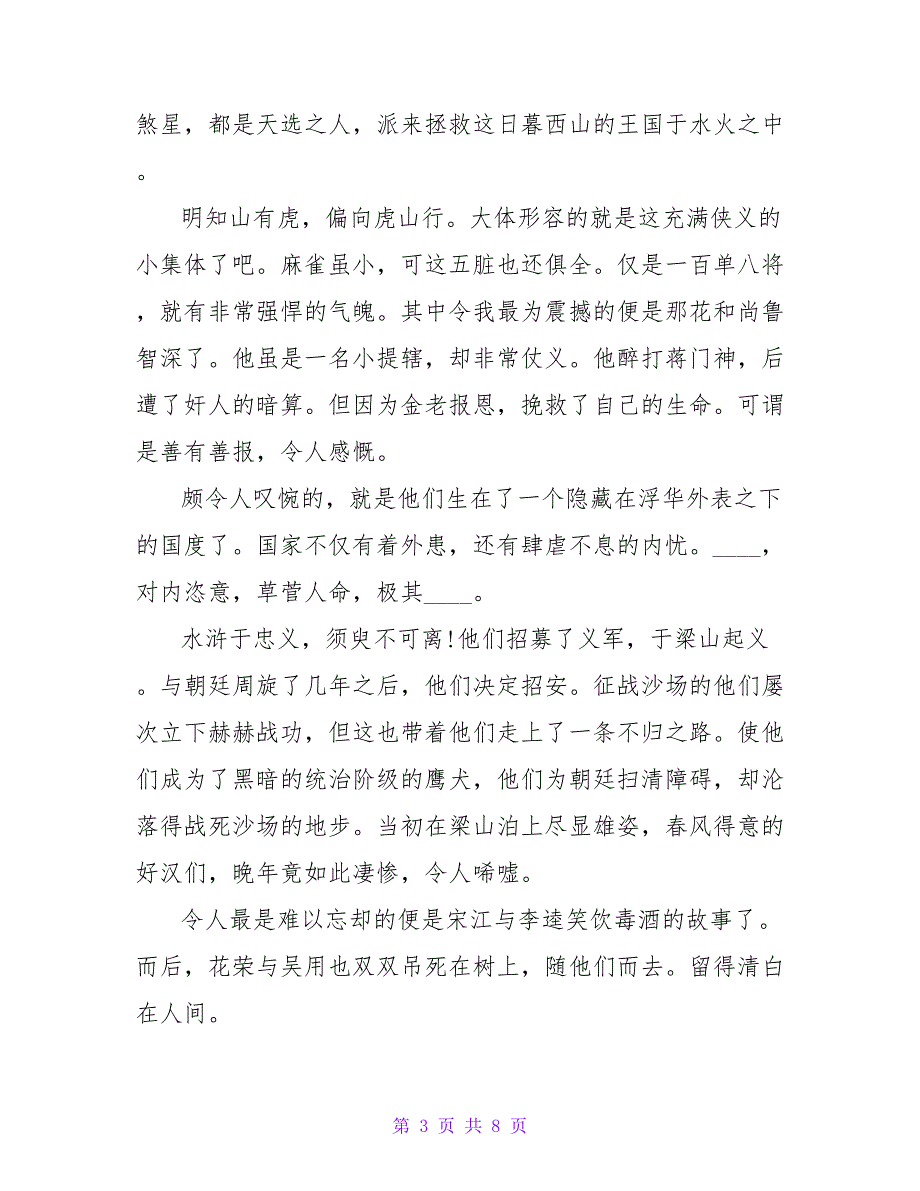 煞星，都是天选之人，派来拯救这日暮西山的王国于水火之中
。
明知山有虎，偏向虎山行。大体形容的就是这充满侠义的
小集体了吧。麻雀虽小，可这五脏也还俱全。仅是一百单八将
，就有非常强悍的气魄。其中令我最为震撼的便是那花和尚鲁
智深了。他虽是一名小提辖，却非常仗义。他醉打蒋门神，后
遭了奸人的暗算。但因为金老报恩，挽救了自己的生命。可谓
是善有善报，令人感慨。
颇令人叹惋的，就是他们生在了一个隐藏在浮华外表之下
的国度了。国家不仅有着外患，还有肆虐不息的内忧。____，
对内恣意，草菅人命，极其____。
水浒于忠义，须臾不可离!他们招募了义军，于梁山起义
。与朝廷周旋了几年之后，他们决定招安。征战沙场的他们屡
次立下赫赫战功，但这也带着他们走上了一条不归之路。使他
们成为了黑暗的统治阶级的鹰犬，他们为朝廷扫清障碍，却沦
落得战死沙场的地步。当初在梁山泊上尽显雄姿，春风得意的
好汉们，晚年竟如此凄惨，令人唏嘘。
令人最是难以忘却的便是宋江与李逵笑饮毒酒的故事了。
而后，花荣与吴用也双双吊死在树上，随他们而去。留得清白
在人间。
第 3 页 共 8 页